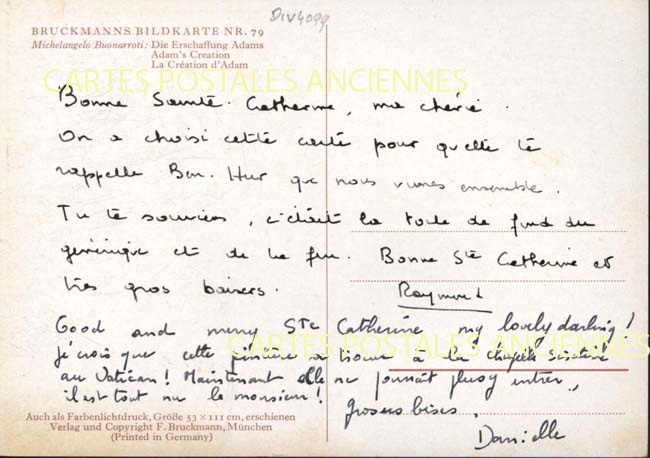 DIV4099
BRUCKMANNS BILDKARTE NR. 79
Michelangelo Buonarroti: Die Erschaffung Adams
Adam's Creation
La Création d'Adam
CARTES POSTALES ANCIENNES
Bonne Sainte Catherine, ma chérie.
On a choisi cette carte pour qu'elle te
rappelle Ben. Hur que nous vîmes ensemble.
Tu te souviens, c'était la toile de fond du
générique et de la fin. Bonne Ste Catherine et
très gros baisers.
Raymond
Good and merry Ste Catherine my lovely darling!
je crois que cette peinture se trouve à la chapelle sixtine
CARTES POSTALES ANCIENNES
au Vatican! Maintenant elle ne pourrait plus y entrer,
il est tout nu le monsieur!
grosses bises,
Danielle
Auch als Farbenlichtdruck, Größe 53 × 111 cm, erschienen
Verlag und Copyright F. Bruckmann, München
(Printed in Germany)